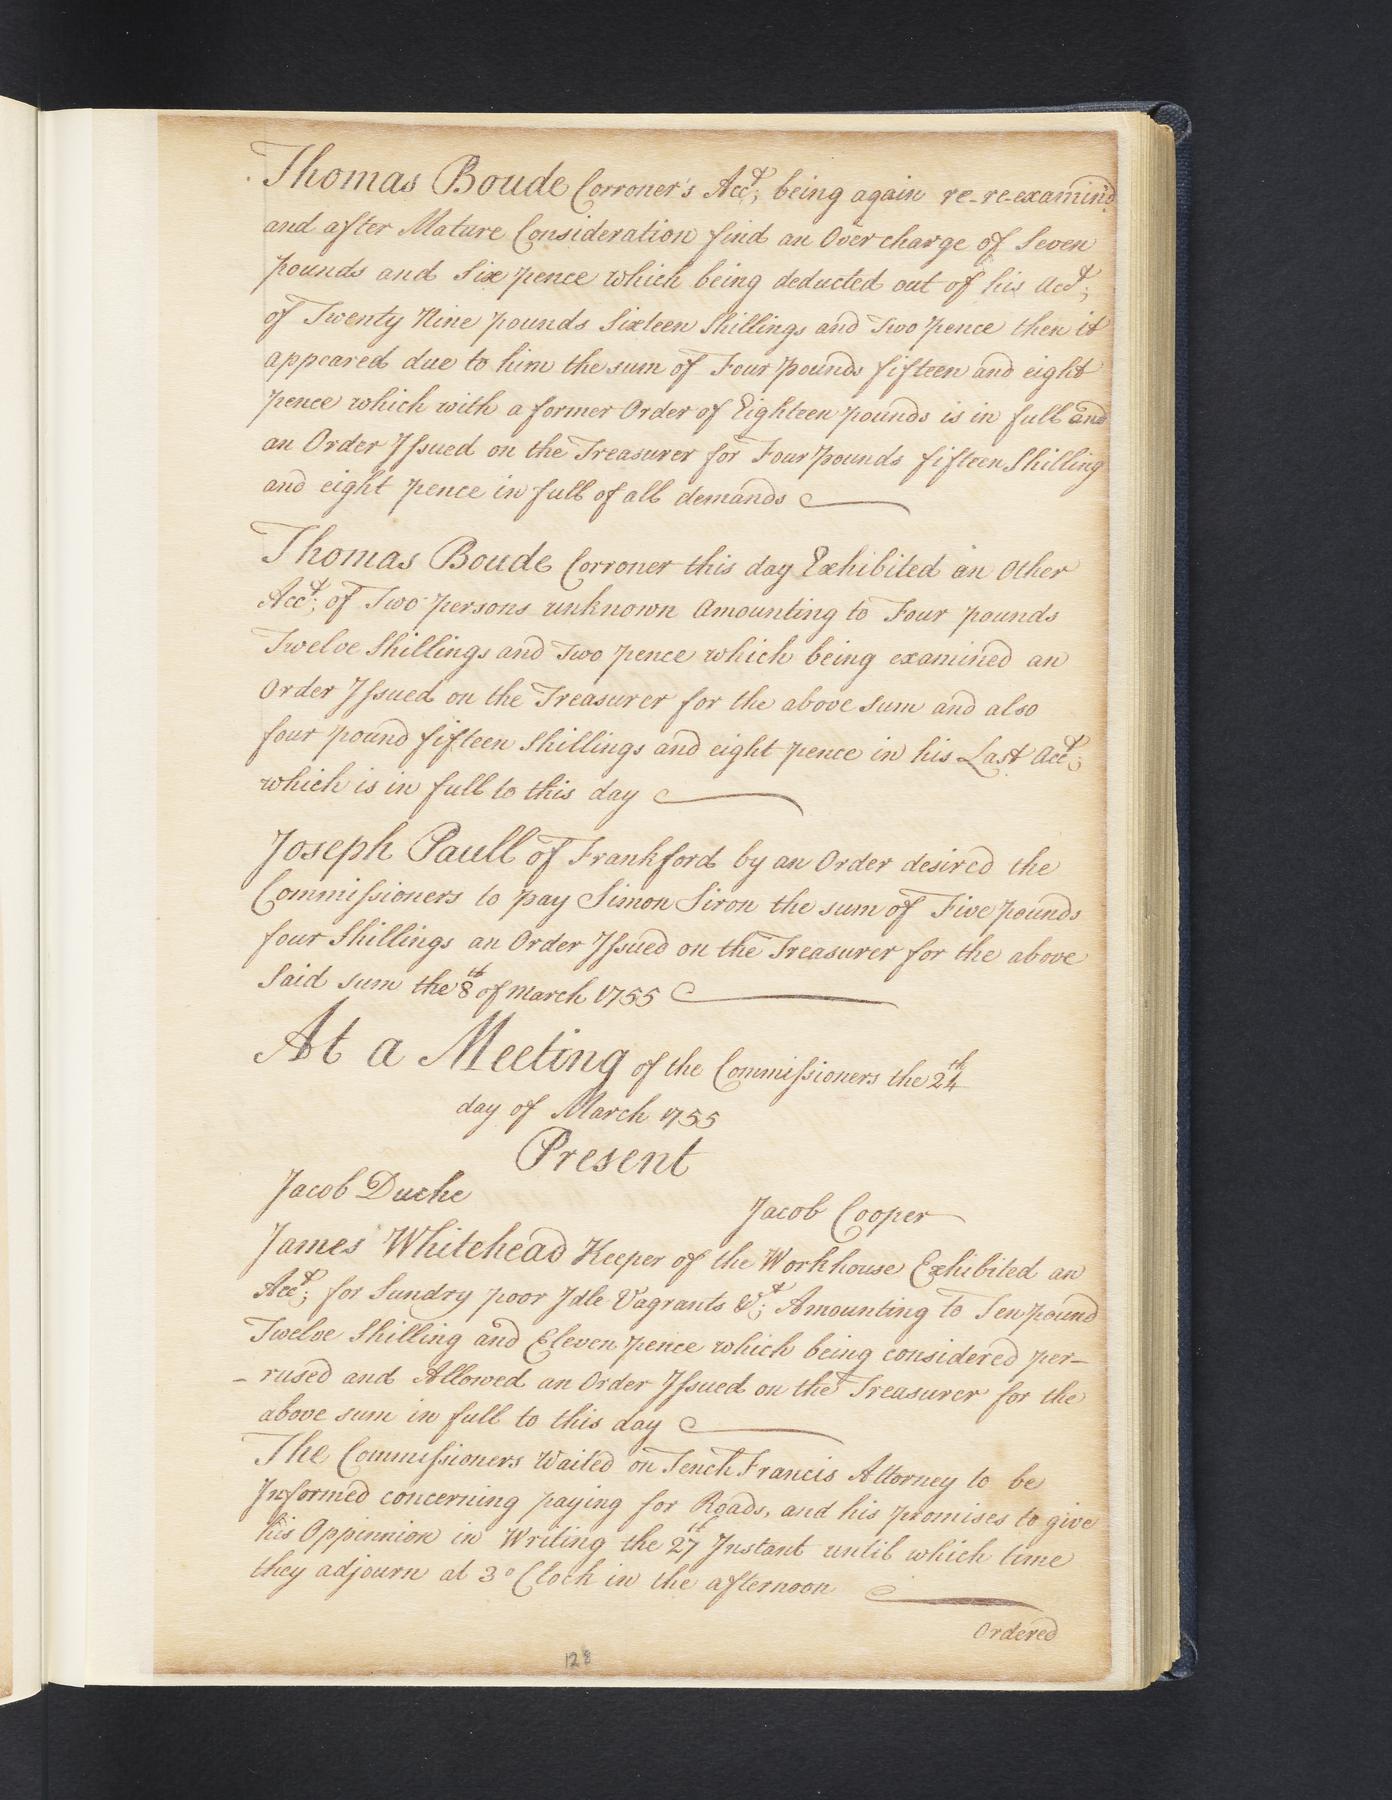 Thomas Boude Corroner's Acct; being again re-re-examin'd
and after Mature Consideration find an Overcharge of Seven
pounds and Six pence which being deducted out of his Acct;
of Twenty Nine pounds Sixteen Shillings and Two pence then it
appeared due to him the sum of Four pounds fifteen and eight
pence which with a former Order of Eighteen pounds is in full and
an Order Issued on the Treasurer for Four pounds fifteen Shilling
and eight pence in full of all demands
Thomas Boude Corroner this day Exhibited an Other
Acct; of Two persons unknown Amounting to Four pounds
Twelve Shillings and Two pence which being examined an
Order Issued on the Treasurer for the above sum and also
four pound fifteen Shillings and eight pence in his Last Acct;
which is in full to this day
Joseph Paull of Frankford by an Order desired the
Commissioners to pay Simon Siron the sum of Five pounds
four Shillings an Order Issued on the Treasurer for the above
Said sum the 8th of March 1755
At a Meeting of the Commissioners the 24th
day of March 1755
Present
Jacob Duche
Jacob Cooper
James Whitehead Keeper of the Workhouse Exhibited an
Acct; for Sundry poor Idle Vagrants &ct; Amounting to Ten pound
Twelve Shilling and Eleven pence which being considered per-
-rused and Allowed an Order Issued on the Treasurer for the
above sum in full to this day
The Commissioners Waited on Tench Francis Attorney to be
Informed concerning paying for Roads, and his promises to give
his Oppinnion in Writing the 27th Instant until which time
they adjourn at 3 o Clock in the afternoon
Ordered
128